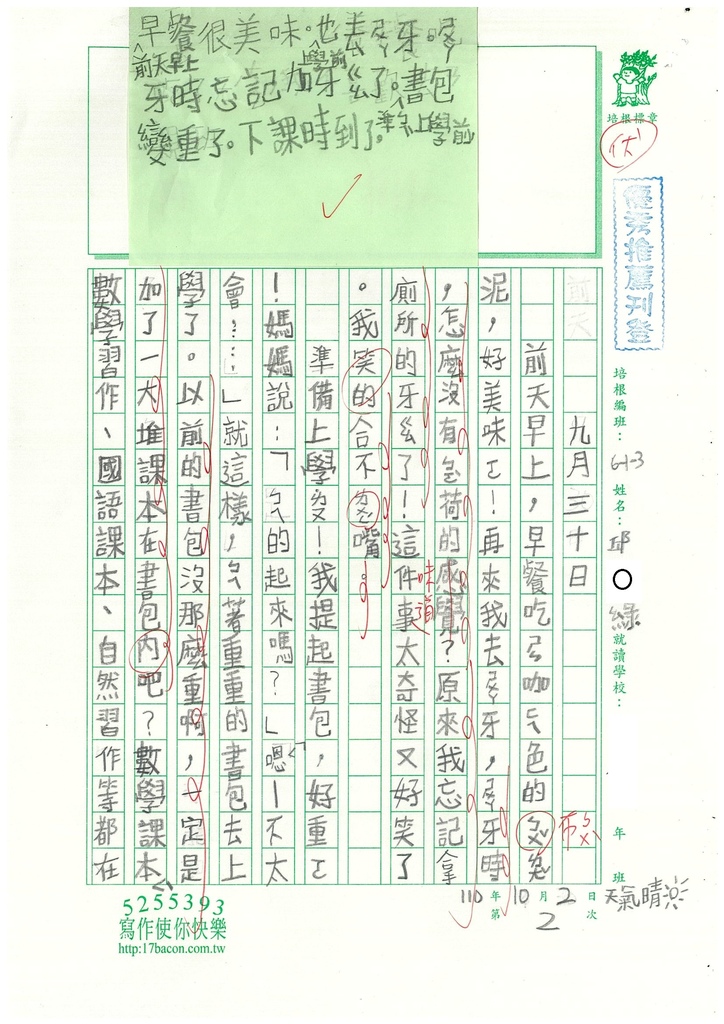 早餐很美味。也去ㄕㄨㄚ牙。ㄕㄨㄚ
前天早上
學前
牙時忘記加牙ㄍㄠ了。書包
變重了。下課時到了。
準備上學前
培根標章
優
優秀推薦刊登
培根編班：
6-1-3
姓名：
邱
綠
就讀學校：
年
班
前天
九月三十日
前天早上，早餐吃ㄌㄜ咖ㄎ色的
泥，好美味ㄛ！再來我去ㄕㄨㄚ牙，ㄕㄨㄚ牙時
，怎麼沒有ㄅㄛ荷的感覺？原來我忘記拿
味道
廁所的牙ㄍㄠ了！這件事太奇怪又好笑了
。我笑的合不ㄌㄨㄥ嘴。
準備上學ㄌㄜ！我提起書包，好重ㄛ
！媽媽說：「ㄅㄟ的起來嗎？」嗯！不太
會……」就這樣，ㄅㄟ著重重的書包去上
學了。以前的書包沒那麼重啊，一定是
加了一大堆課本在書包內吧？數學課本、
數學習作、國語課本、自然習作等都在
5255393
寫作使你快樂
http:17bacon.com.tw
110年10月2日
天氣晴
第2次